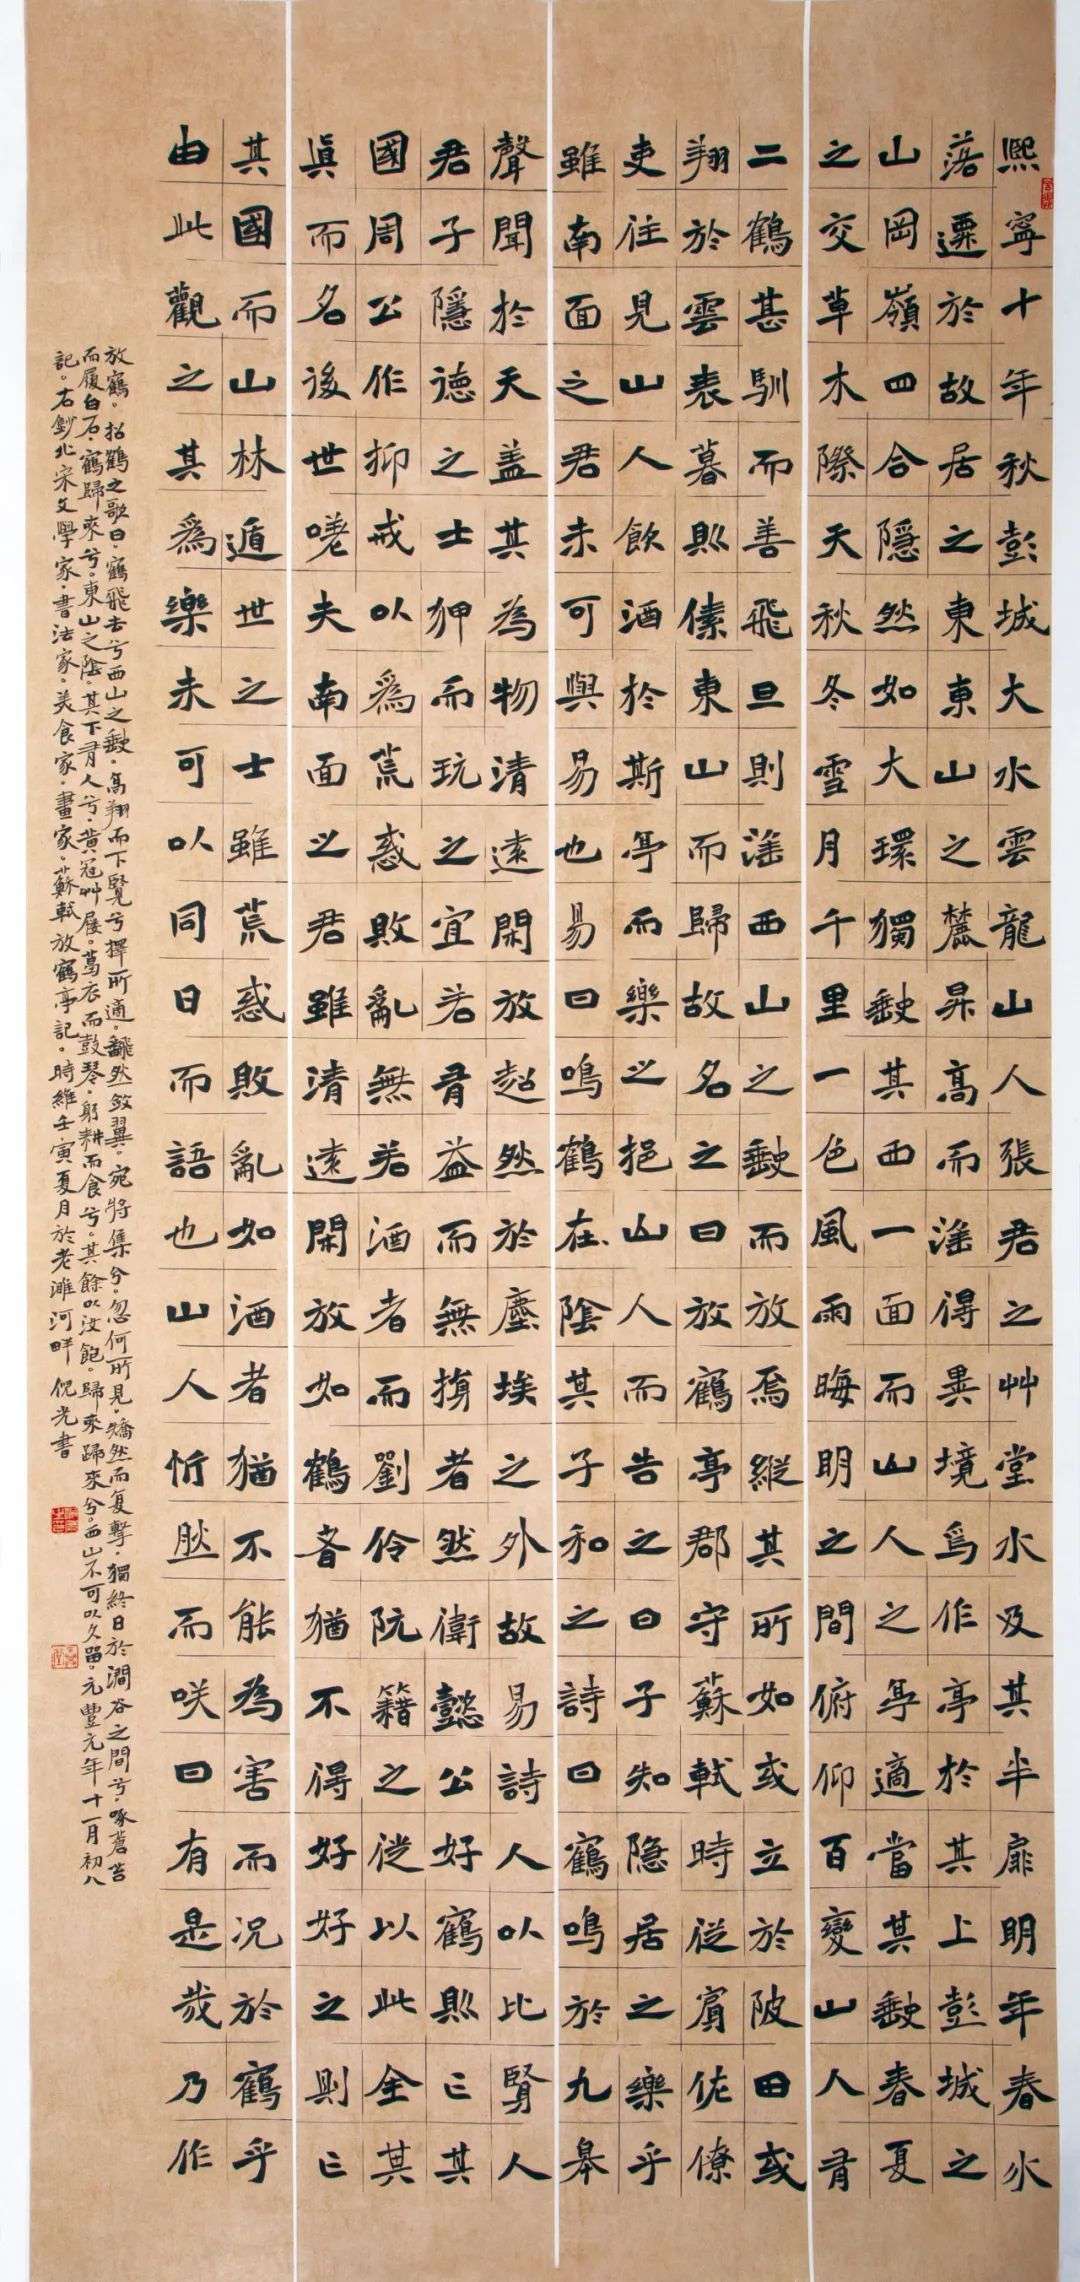 熙寧十年秋彭城大水雲龍山人張君之艸堂水及其半扉明年春水
落遷於故居之東東山之麓昇高而望得異境焉作亭於其上彭城之
山岡嶺四合隱然如大環獨缺其西一面而山人之亭適當其缺春夏
之交草木際天秋冬雪月千里一色風雨晦明之間俯仰百變山人有
二鶴甚馴而善飛旦則望西山之缺而放焉縱其所如或立於陂田或
翔於雲表暮則傃東山而歸故名之曰放鶴亭郡守蘇軾時從賓佐僚
吏往見山人飲酒於斯亭而樂之挹山人而告之曰子知隱居之樂乎
雖南面之君未可與易也易曰鳴鶴在陰其子和之詩曰鶴鳴於九皋
聲聞於天蓋其為物清遠閑放超然於塵埃之外故易詩人以比賢人
君子隱德之士狎而玩之宜若有益而無損者然衛懿公好鶴則亡其
國周公作抑戒以為荒惑敗亂無若酒者而劉伶阮籍之徒以此全其
真而名後世嗟夫南面之君雖清遠閑放如鶴者猶不得好好之則亡
其國而山林遁世之士雖荒惑敗亂如酒者猶不能為害而況於鶴乎
由此觀之其為樂未可以同日而語也山人忻然而笑曰有是哉乃作
放鶴。招鶴之歌曰。鶴飛去兮西山之缺。高翔而下覽兮擇所適。翻然斂翼。宛將集兮。忽何所見。矯然而复擊。獨終日於澗谷之間兮。啄蒼苔
而履白石。鶴歸來兮。東山之陰。其下有人兮。黃冠艸屨。葛衣而鼓琴。躬耕而食兮。其餘以汝飽。歸來歸來兮。西山不可以久留。元豐元年十一月初八
記。右鈔北宋文學家。書法家。美食家。畫家。蘇軾放鶴亭記。時維壬寅夏月於老濉河畔 倪光書